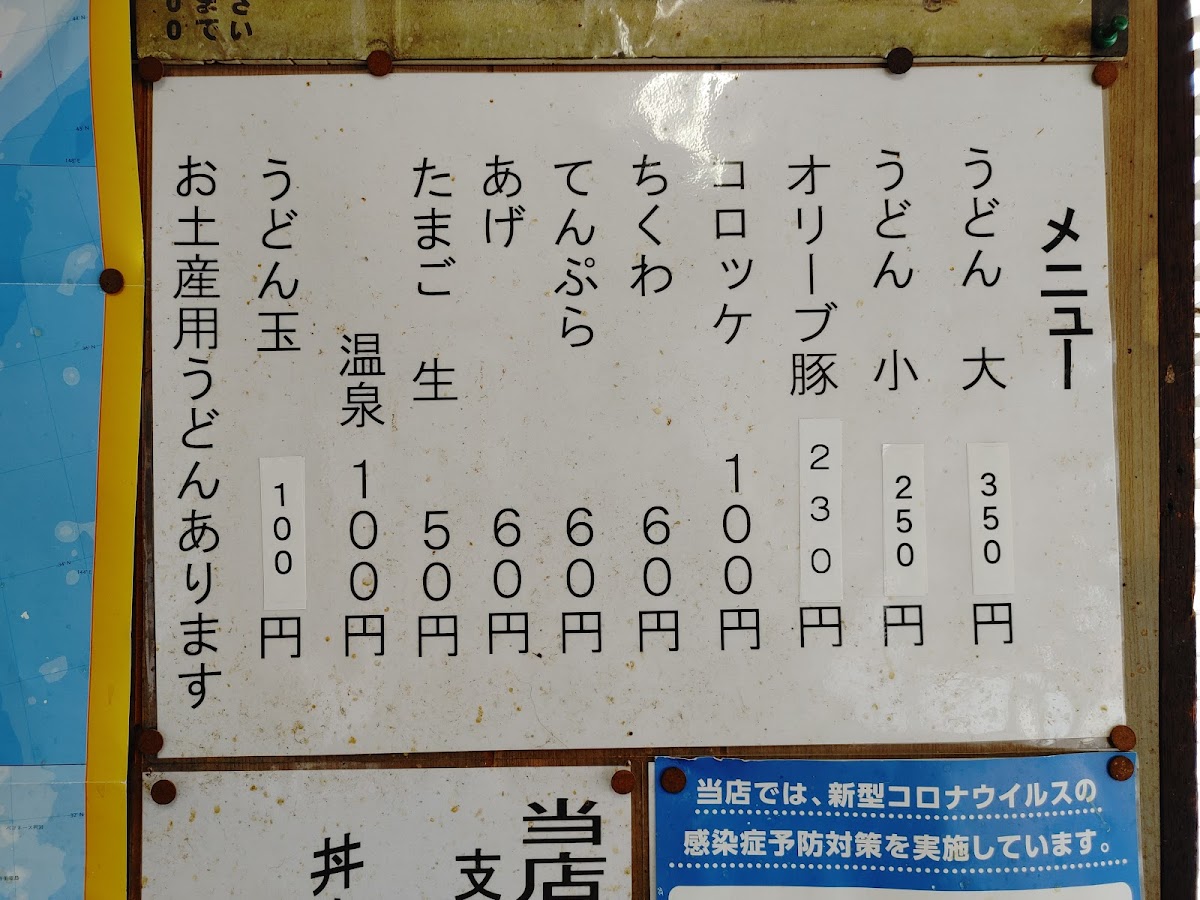 メニュー
うどん 大 350円
うどん 小 250円
オリーブ豚 230円
コロッケ 100円
ちくわ 60円
てんぷら 60円
あげ 60円
たまご 生 50円
温泉 100円
うどん玉 100円
お土産用うどんあります
当店では、新型コロナウイルスの
感染症予防対策を実施しています。
当店
支
丼